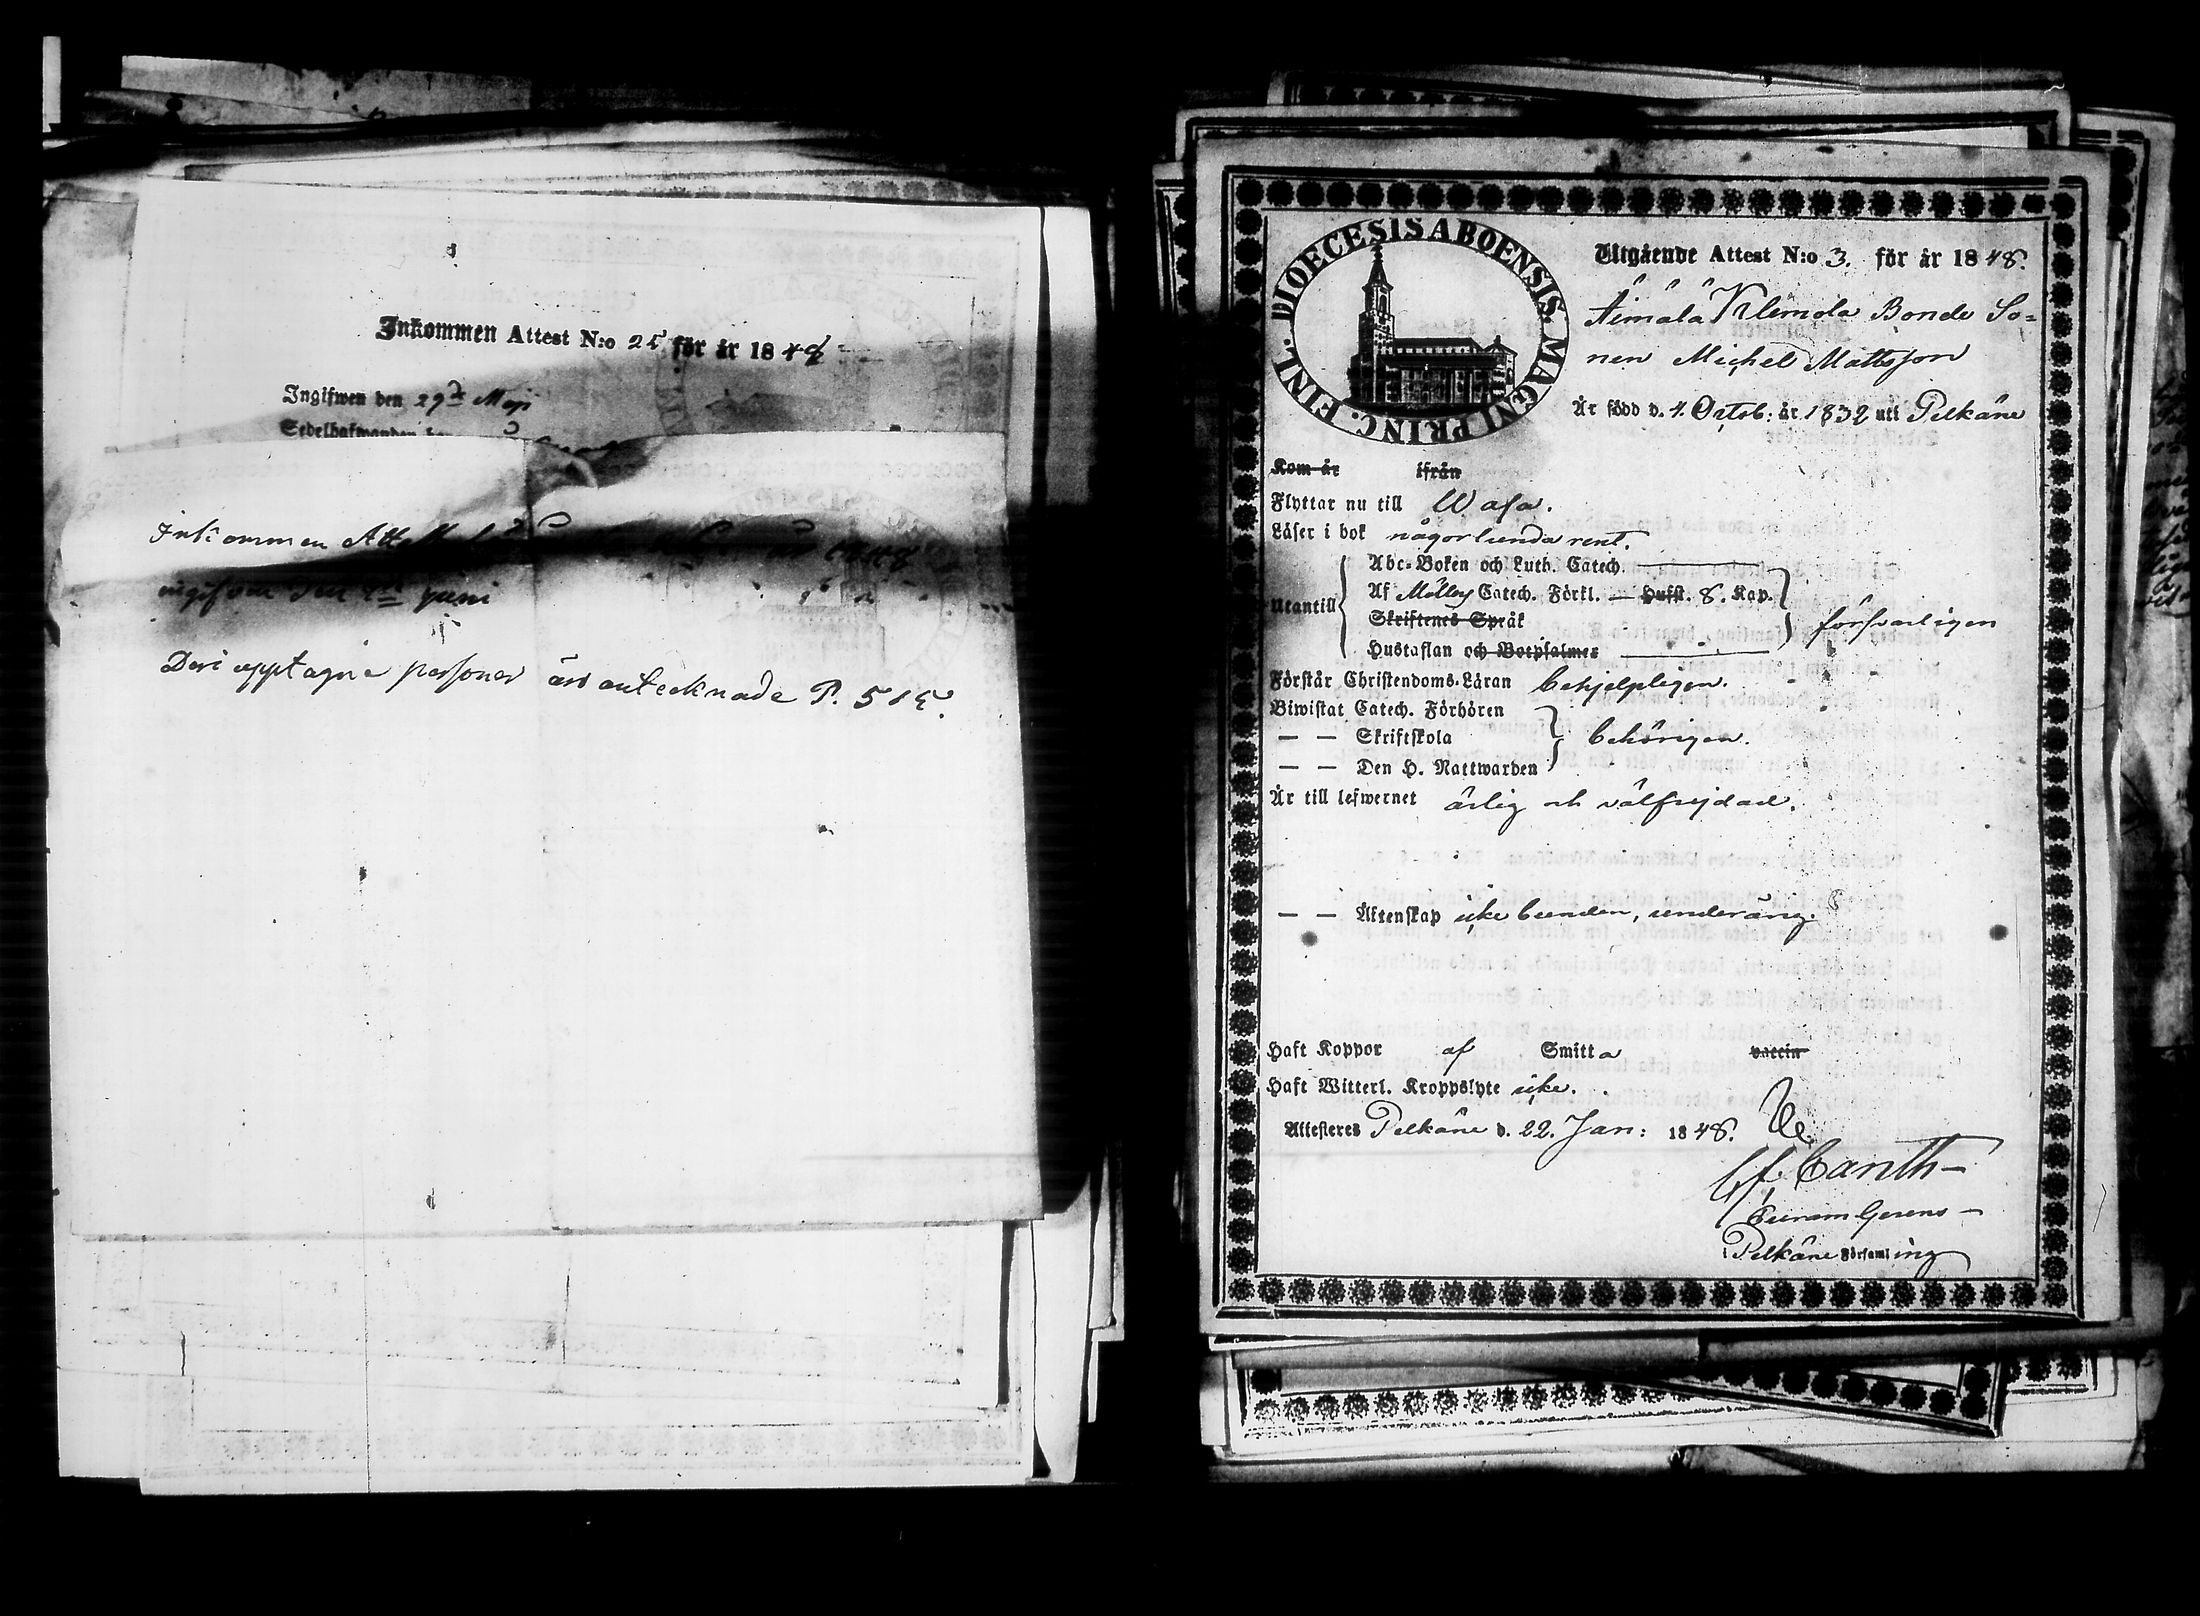 Inkommen Attest N:o 25 för år 1848
Ingifwen den 29de Maji
Sedelhafwanden
Inkommen
ingifven den 2dra Juni
Deri upptagne personer äro antecknade P. 515.
DIOECESIS ABOENSIS. MAGNI PRINC. FINL.
Utgående Attest N:o 3. för år 1848.
Äimälä Klemola Bonde So=
nen Michel Mattsson
Är född d. 4. Octob. år 1832 uti Pelkäne
Kom år ifrån
Flyttar nu till Wasa.
Läser i bok någorlunda rent.
Utantill
Abc=Boken och Luth. Catech.
Af Möllers Catech. Förkl. — Hufst. 8. Kap.
Skriftenes Språk
försvarligen
Hustaflan och Botpsalmer
Förstår Christendoms-Läran behjelpligen.
Biwistat Catech. Förhören
— — Skriftskola
behörigen.
— — Den H. Nattwarden
Är till lefwernet ärlig och välfrejdad.
— — Äktenskap icke bunden, underårig.
Haft Koppor af Smitta vaccin
Haft Witterl. Kroppslyte icke.
Attesteras Pelkäne d. 22. Jan: 1848.
Canth
Curam Gerens
i Pelkäne Församling